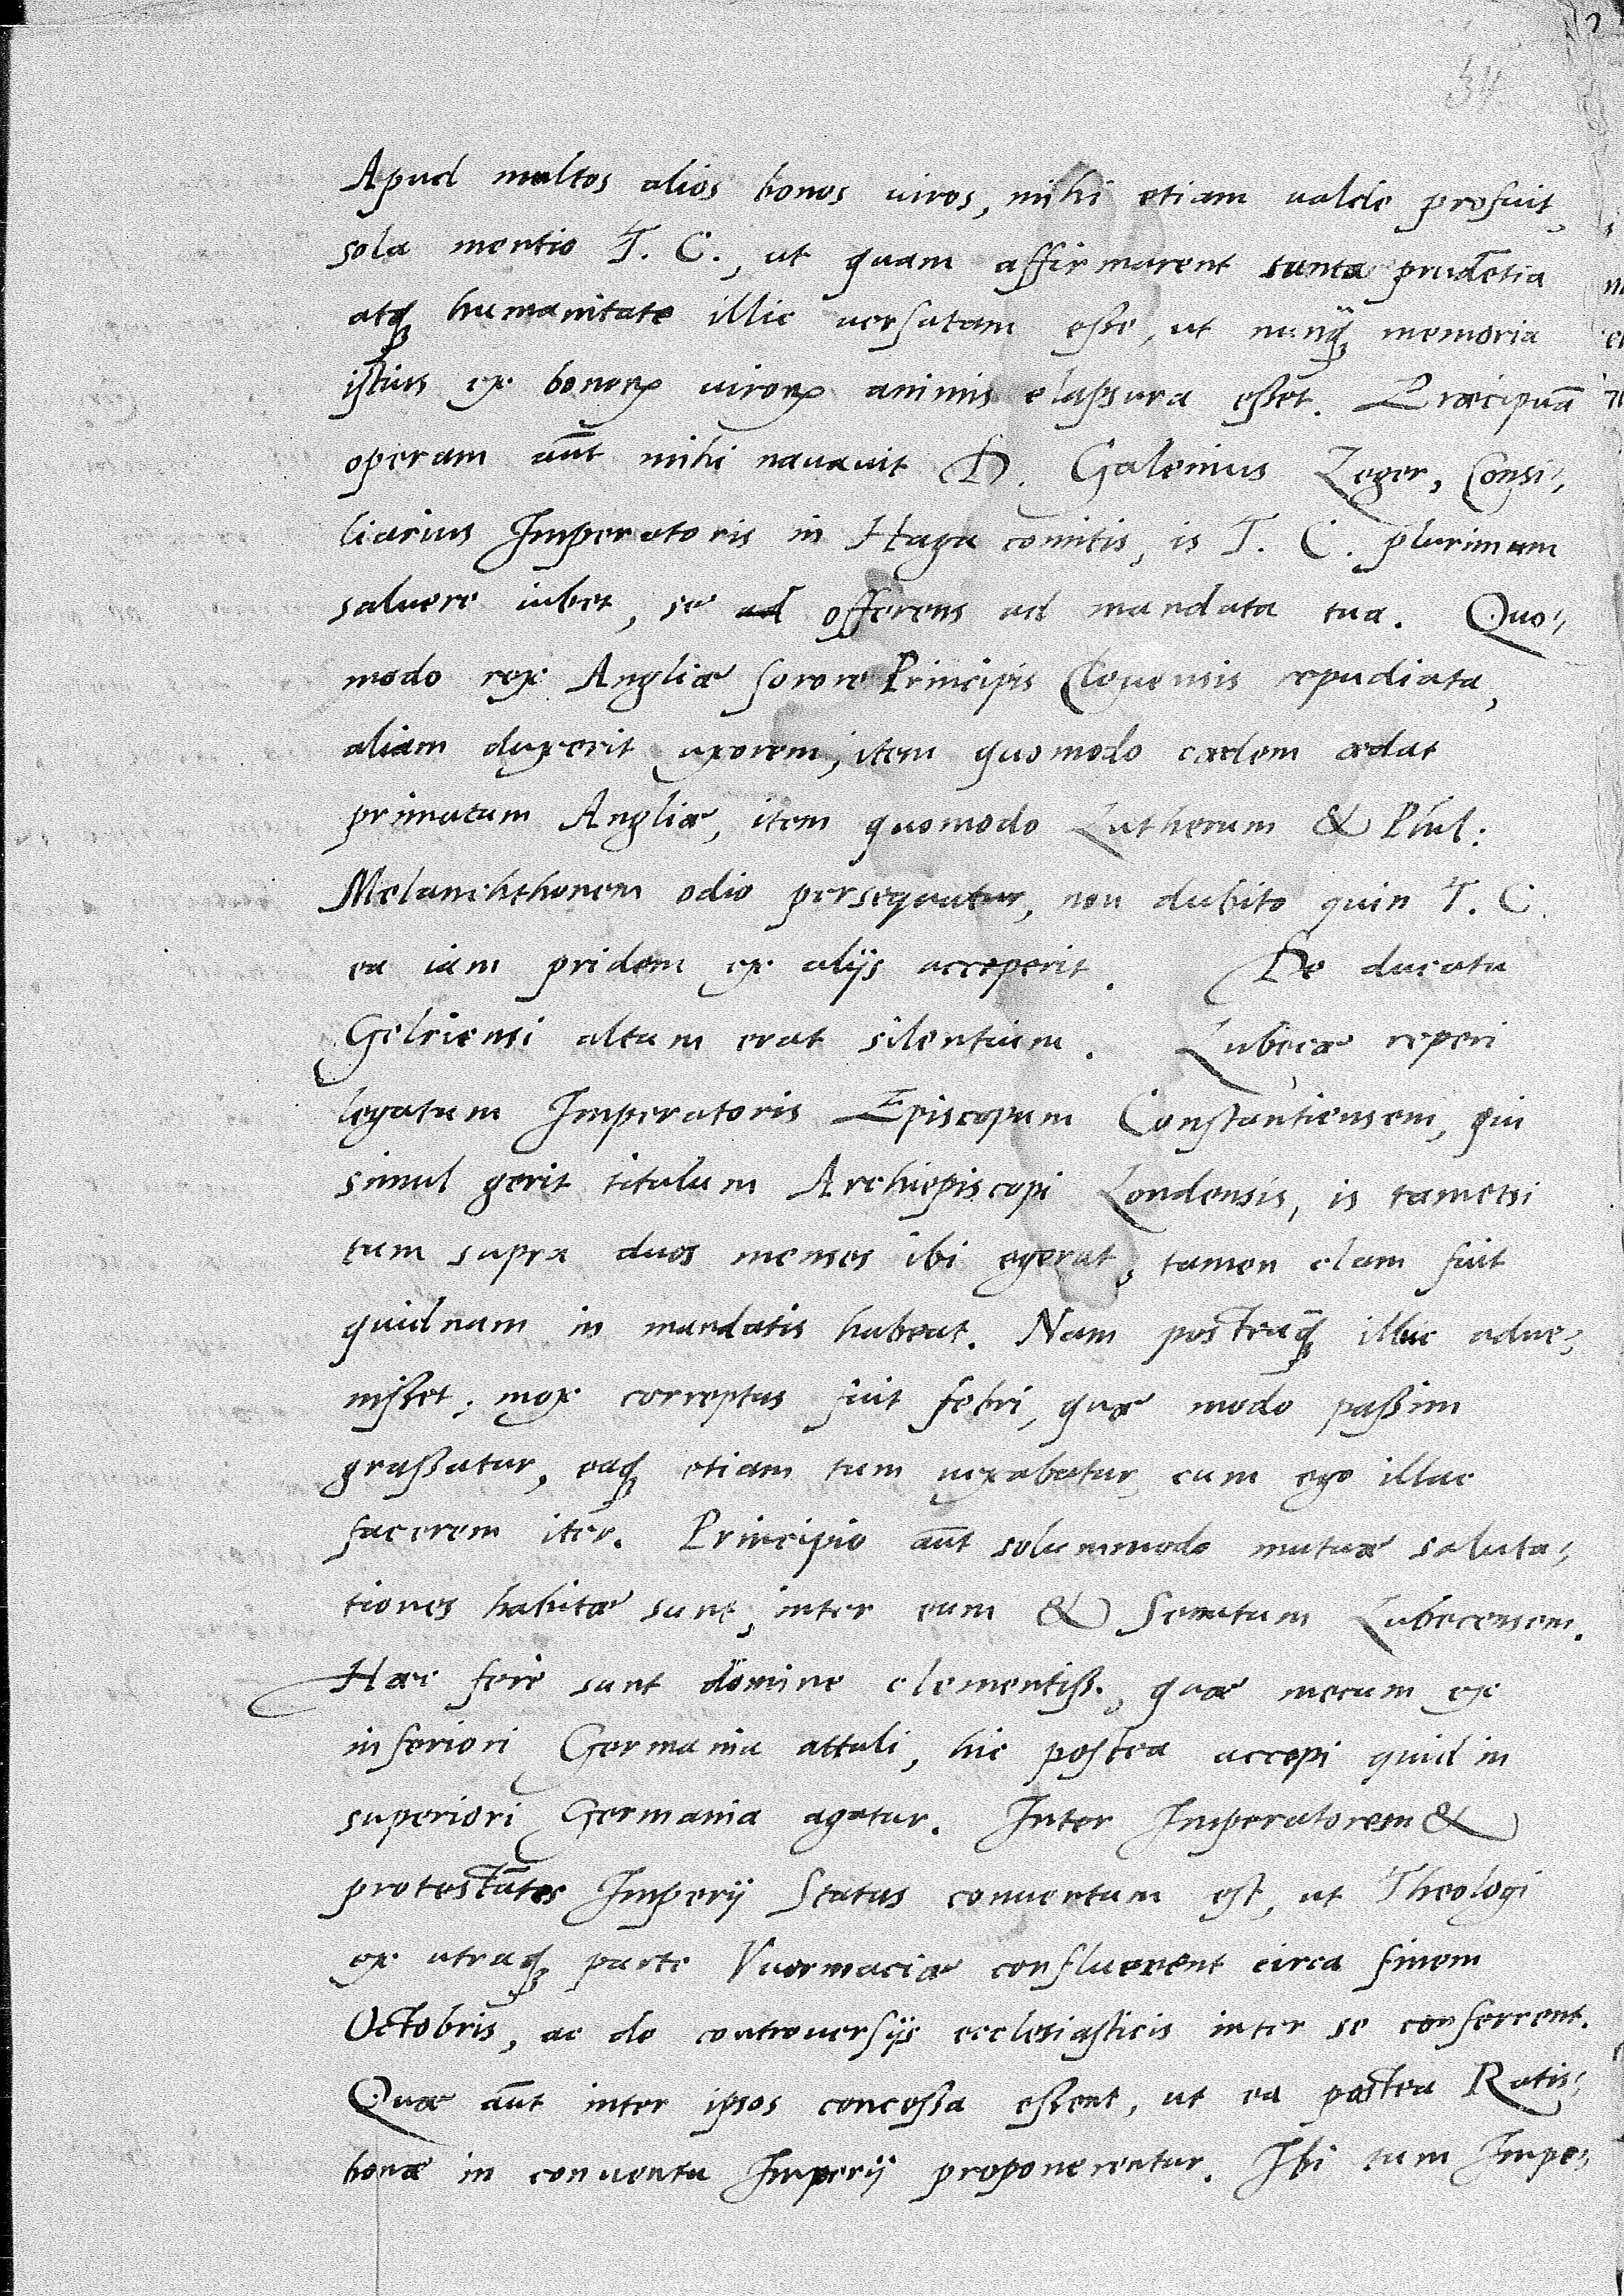 34
Apud multos alios bonos uiros, mihi etiam ualde profuit
sola mentio T. C., ut quam affirmarent tanta prudētia
atq̨ humanitate illic uersatam esse, ut nunq̨ memoria
istius ex bonorꝝ uirorꝝ animis elapsura esset. Præcipuā
operam aūt mihi nauauit D. Galenius Zeger, Consi⸗
liarius Imperatoris in Haga comitis, is T. C. plurimum
saluere iubet, se ad offerens ad mandata tua. Quo⸗
modo rex Angliæ sorore Principis Cleuensis repudiata,
aliam duxerit uxorem, item quomodo cædem ædat
primatum Angliæ, item quomodo Lutherum & Phil:
Melanchthonem odio persequatur, non dubito quin T. C.
ea iam pridem ex alijs acceperit. De ducatu
Gelriensi altum erat silentium. Lubecæ reperi
legatum Imperatoris Episcopum Constantiensem, qui
simul gerit titulum Archiepiscopi Londensis, is tametsi
tum supra duos menses ibi egerat, tamen clam fuit
quidnam in mandatis habeat. Nam posteaq̨ illuc adue⸗
nisset, mox correptus fuit febri, quæ modo passim
grassatur, eaq̨ etiam tum uexabatur, cum ego illac
facerem iter. Principio aūt solummodo mutuæ saluta⸗
tiones habitæ sunt, inter eum & Senatum Lubecensem.
Hæc ferè sunt domine clementiss., quæ mecum ex
inferiori Germania attuli, hic postea accepi quid in
superiori Germania agatur. Inter Imperatorem &
protestātes Imperij Status conuentum est, ut Theologi
ex utraq̨ parte Vuormaciæ confluerent circa finem
Octobris, ac de controuersijs ecclesiasticis inter se conferrent.
Quæ aūt inter ipsos concessa essent, ut ea postea Ratis⸗
bonæ in conuentu Imperij proponerentur. Ibi tum Impe⸗